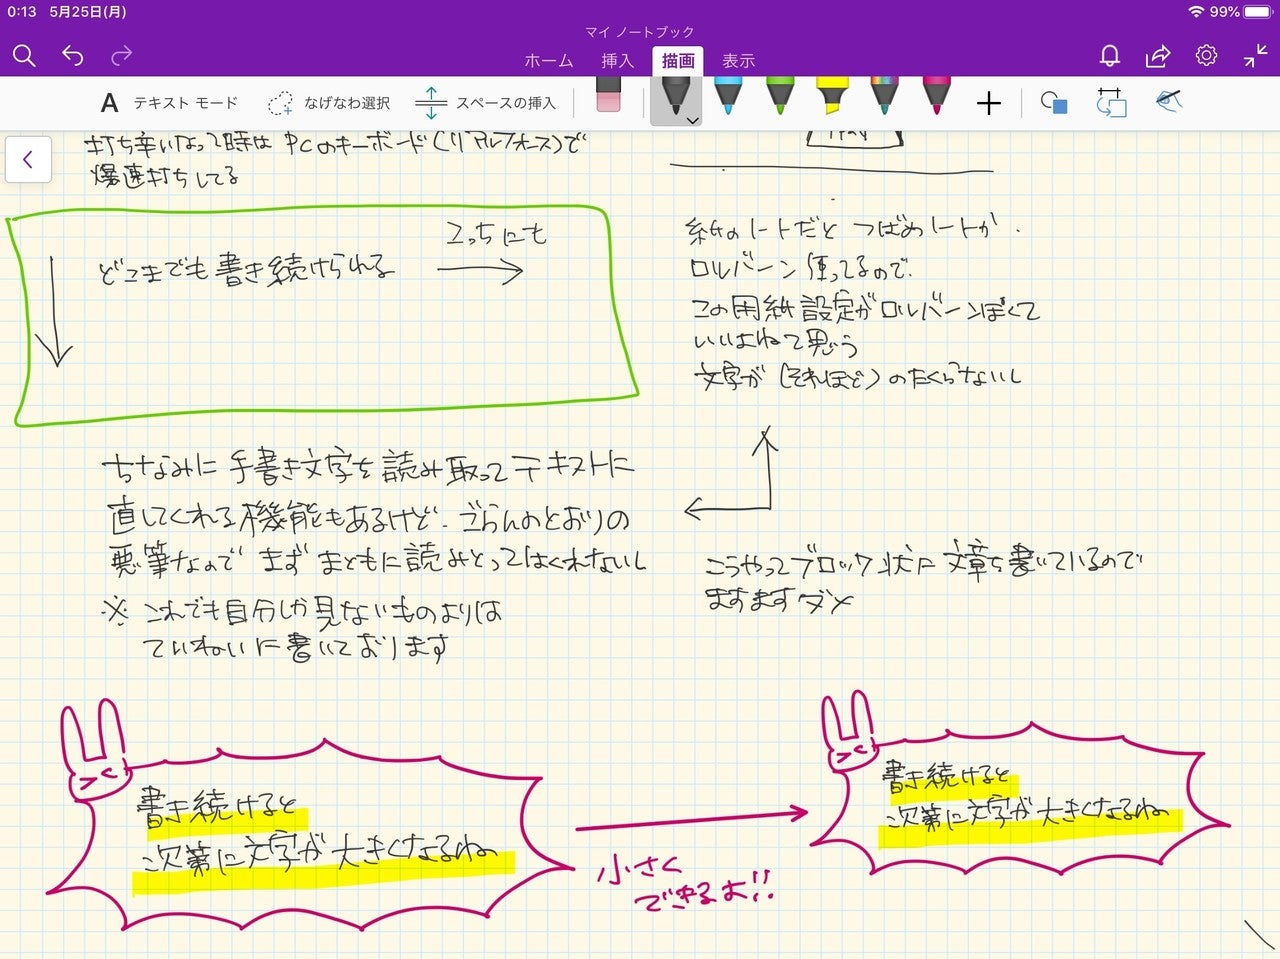 0:13 5月25日(月)
99%
マイ ノートブック
ホーム 挿入 描画 表示
テキスト モード なげなわ選択 スペースの挿入
打ち辛いなって時は PCのキーボード(リアルフォース)で
爆速打ちしてる
どこまでも書き続けられる
こっちにも
ちなみに手書き文字を読み取ってテキストに
直してくれる機能もあるけど、ごらんのとおりの
悪筆なので まず まともに読みとってはくれないし
※ これでも自分しか見ないものよりは
ていねいに書いております
紙のノートだと つばめノートか
ロルバーン使ってるので、
この用紙設定がロルバーンぽくて
いいよねって思う
文字が(それほど)のたくらないし
こうやってブロック状に文章を書いているので
ますますダメ
書き続けると
次第に文字が大きくなるね
小さく
できるよ!!
書き続けると
次第に文字が大きくなるね